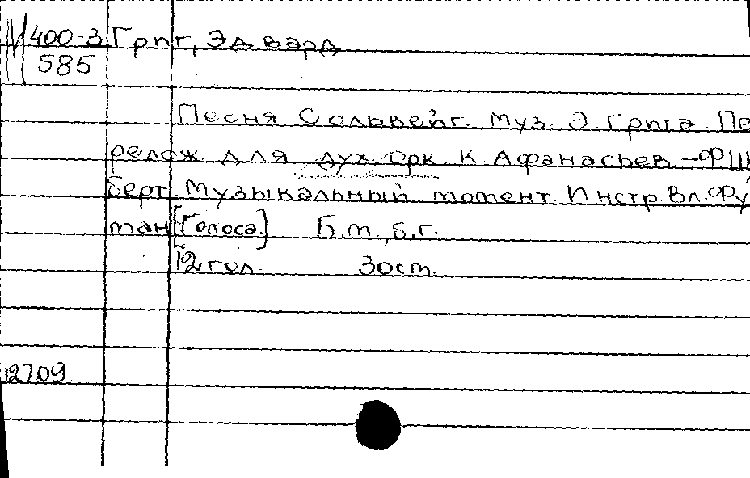 М 400-3 Григ, Эдвард
585
Песня Сольвейг. Муз. Э. Грига. Пе
релож. для дух. орк. К. Афанасьев. – Ф. Шу
берт. Музыкальный момент. Инстр. Вл. Фу
ман [Голоса.] Б.м., б.г.
12 гол. 30 ст.
12709